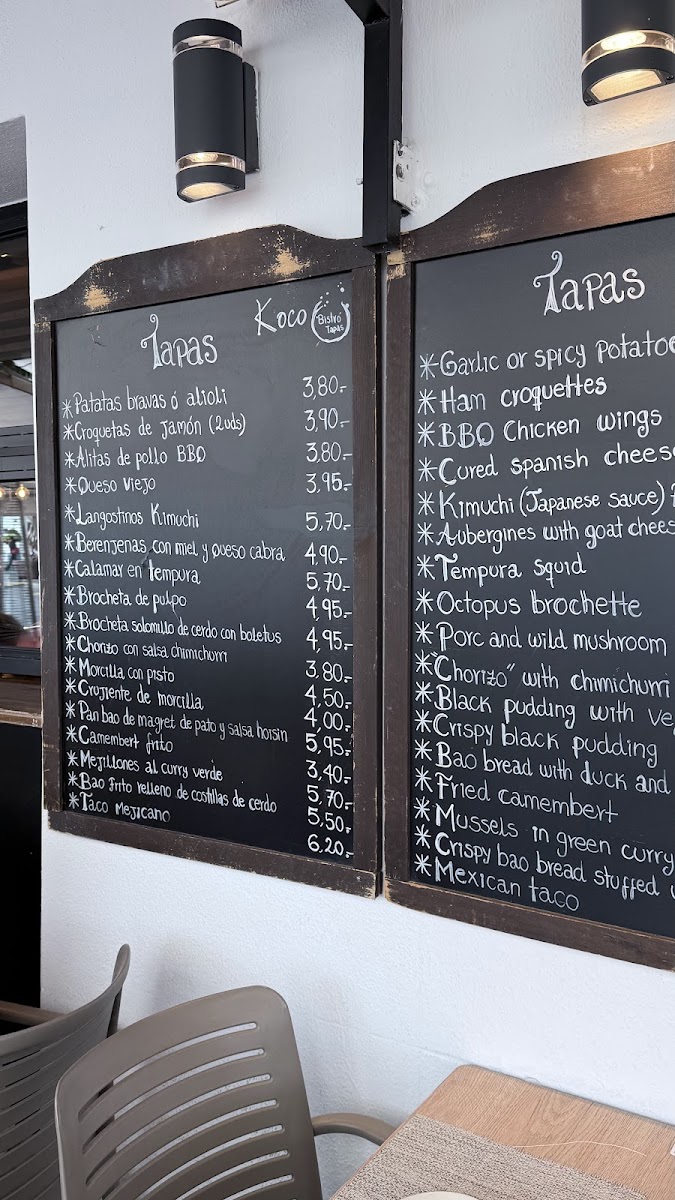 Koco Bistro Tapas
Tapas
*Patatas bravas ó alioli 3,80.-
*Croquetas de jamón (2uds) 3,90.-
*Alitas de pollo BBQ 3,80.-
*Queso viejo 3,95.-
*Langostinos Kimuchi 5,70.-
*Berenjenas con miel y queso cabra 4,90.-
*Calamar en tempura 5,70.-
*Brocheta de pulpo 4,95.-
*Brocheta solomillo de cerdo con boletus 4,95.-
*Chorizo con salsa chimichurri 3,80.-
*Morcilla con pisto 4,50.-
*Crujiente de morcilla 4,00.-
*Pan bao de magret de pato y salsa hoisin 5,95.-
*Camembert frito 3,40.-
*Mejillones al curry verde 5,70.-
*Bao frito relleno de costillas de cerdo 5,50.-
*Taco Mejicano 6,20.-
Tapas
*Garlic or spicy potatoe
*Ham croquettes
*BBQ Chicken wings
*Cured spanish cheese
*Kimuchi (Japanese sauce)
*Aubergines with goat chees
*Tempura squid
*Octopus brochette
*Porc and wild mushroom
*"Chorizo" with chimichurri
*Black pudding with ve
*Crispy black pudding
*Bao bread with duck and
*Fried camembert
*Mussels in green curry
*Crispy bao bread stuffed
*Mexican taco